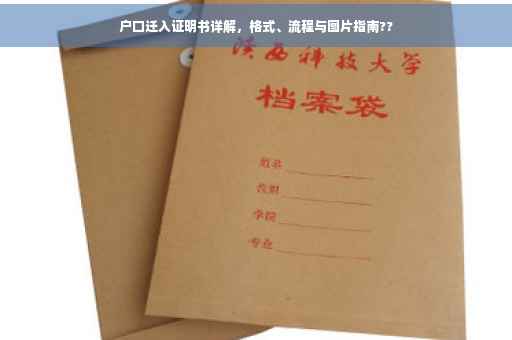 户口迁入证明书详解，格式、流程与图片指南??
陕西科技大学
档案袋
姓名
学院
专业